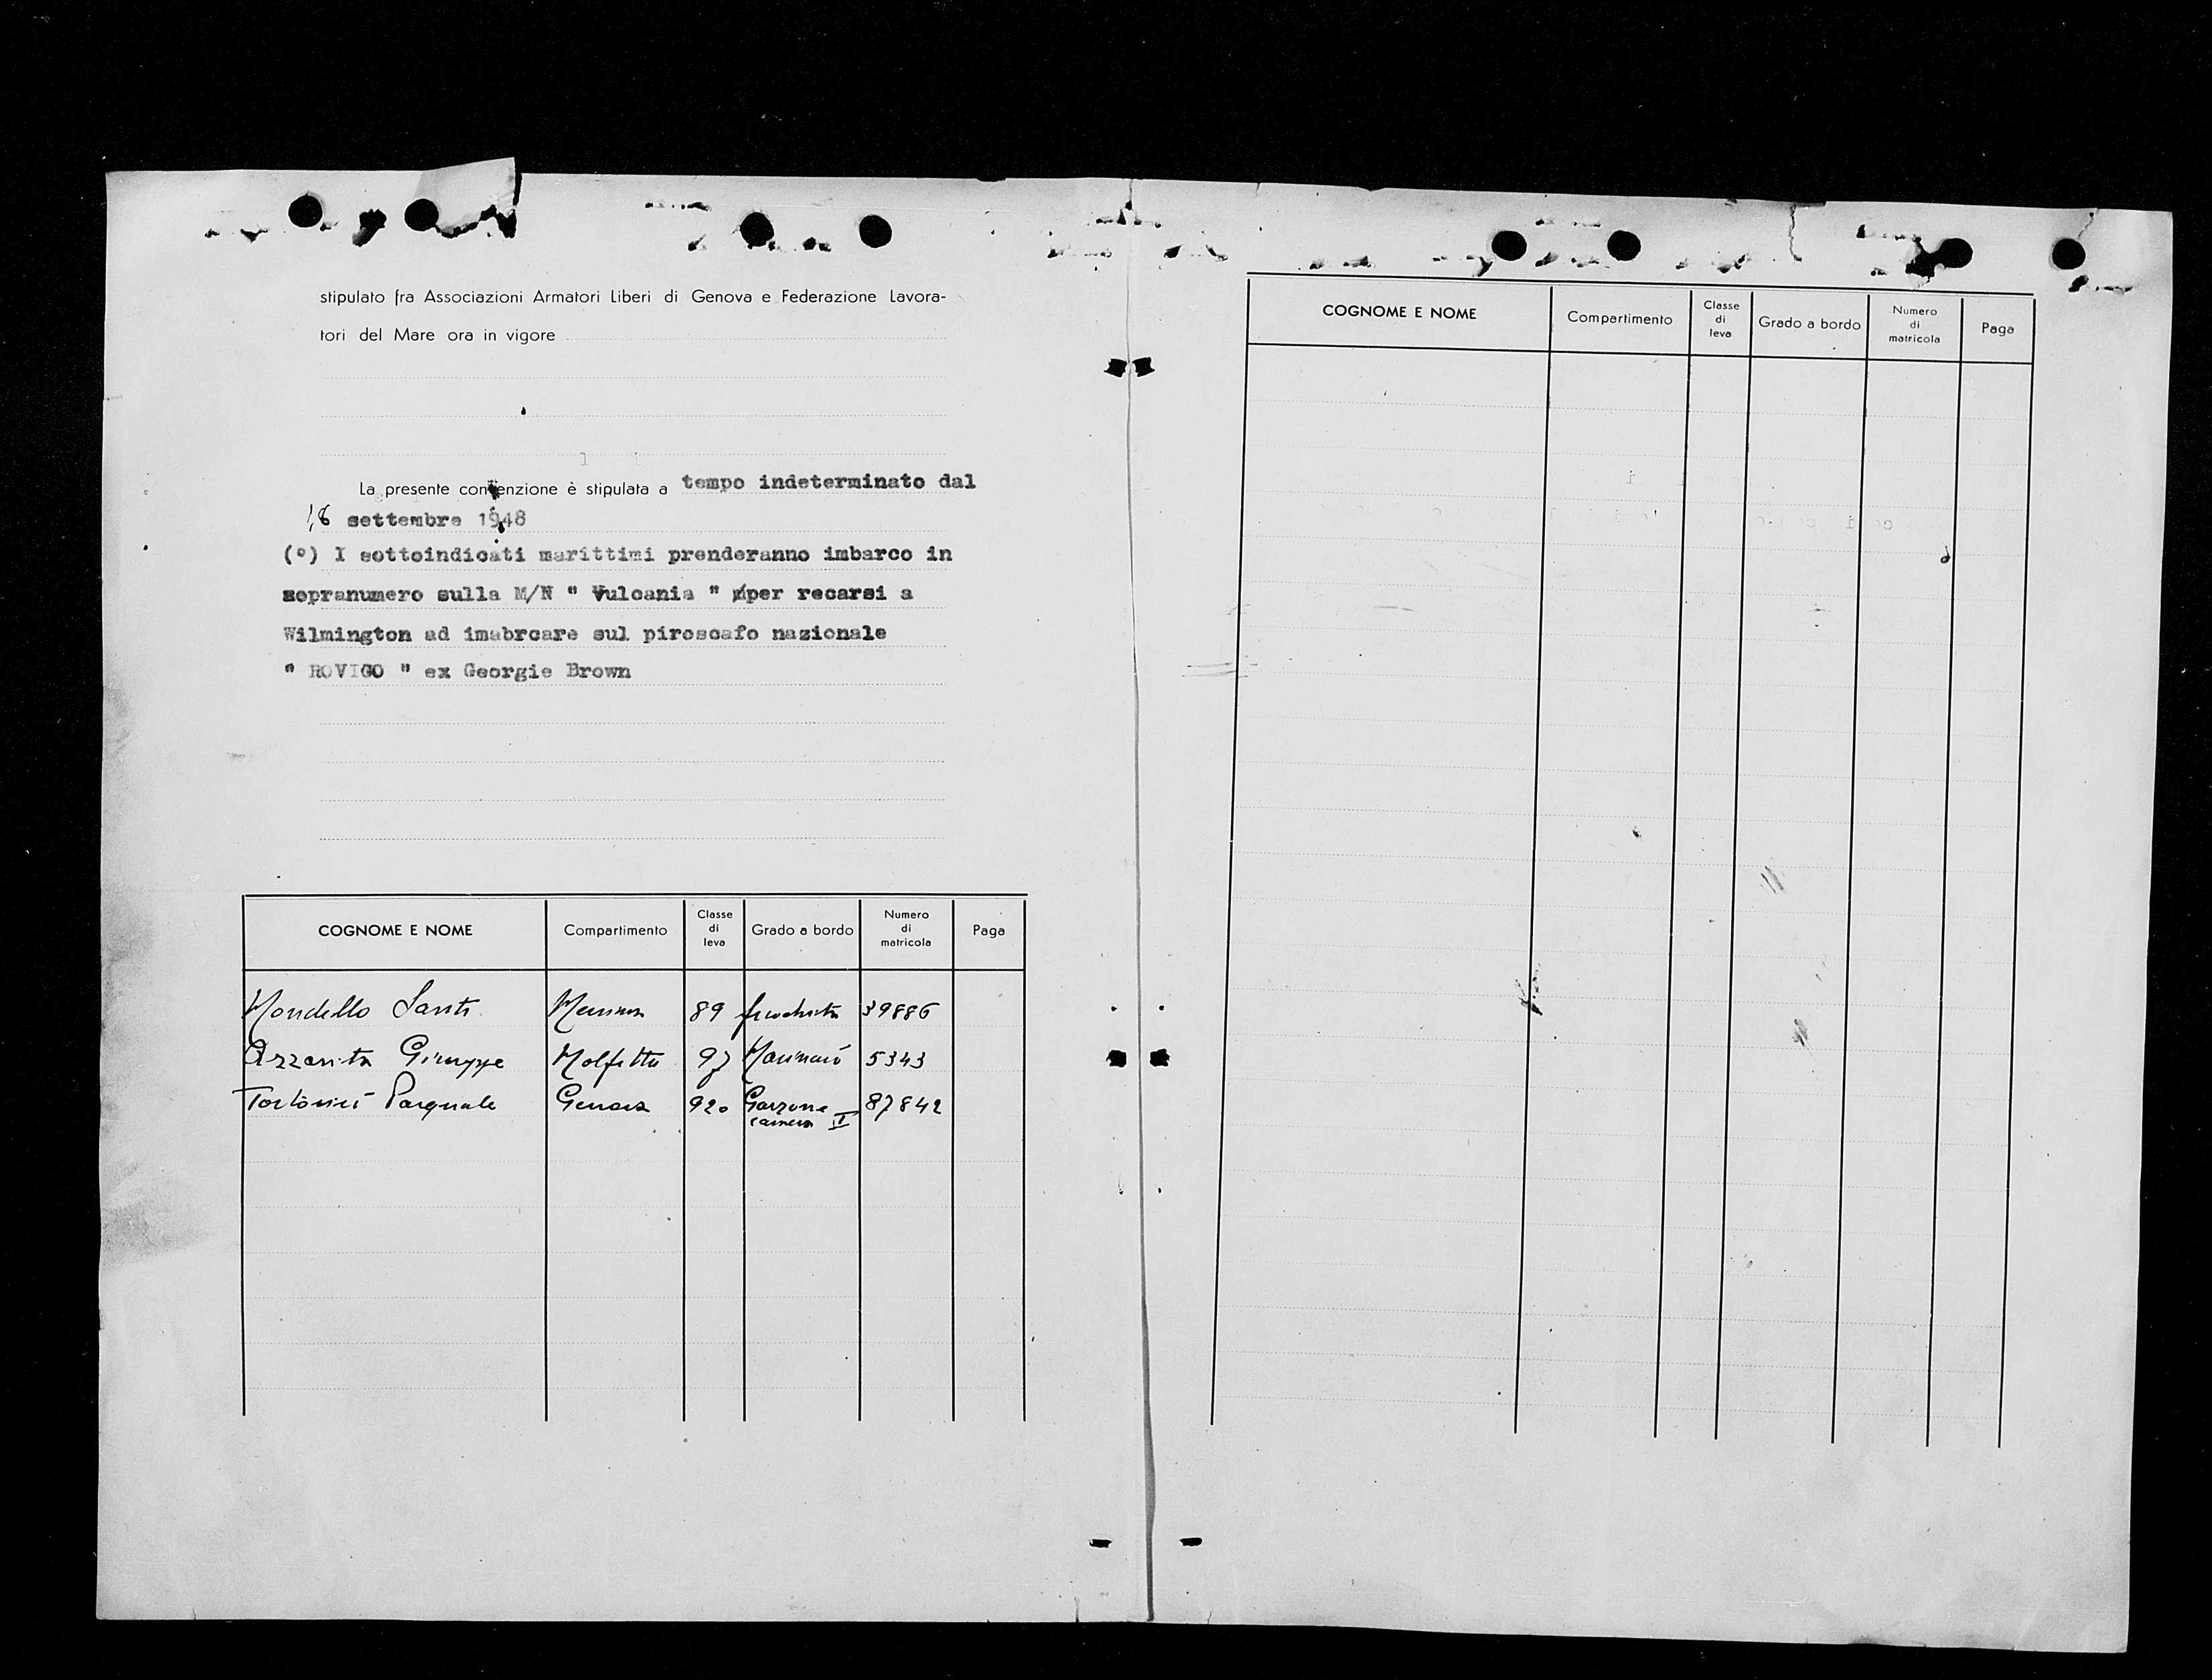 stipulato fra Associazioni Armatori Liberi di Genova e Federazione Lavora-
tori del Mare ora in vigore
La presente convenzione è stipulata a tempo indeterminato dal
18 settembre 1948
(°) I sottoindicati marittimi prenderanno imbarco in
sopranumero sulla M/N " Vulcania " per recarsi a
Wilmington ad imabrcare sul piroscafo nazionale
" ROVIGO " ex Georgie Brown
COGNOME E NOME Compartimento Classe di leva Grado a bordo Numero di matricola Paga
Mondello Santi Messina 89 fuochista 39886
Azzarita Giuseppe Molfetta 97 Marinaio 5343
Tortorici Pasquale Genova 920 Garzone camera II 87842
COGNOME E NOME Compartimento Classe di leva Grado a bordo Numero di matricola Paga